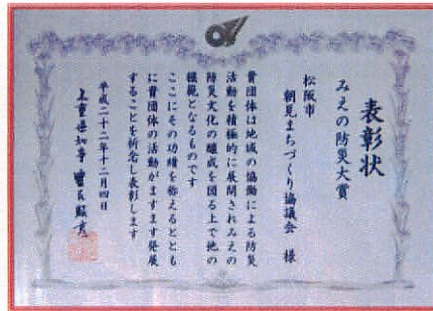 表彰状
みえの防災大賞
松阪市
朝見まちづくり協議会 様
貴団体は地域の協働による防災
活動を積極的に展開されみえの
防災文化の醸成を図る上で他の
模範となるものです
ここにその功績を称えるととも
に貴団体の活動がますます発展
することを祈念し表彰します
平成二十二年十二月四日
三重県知事